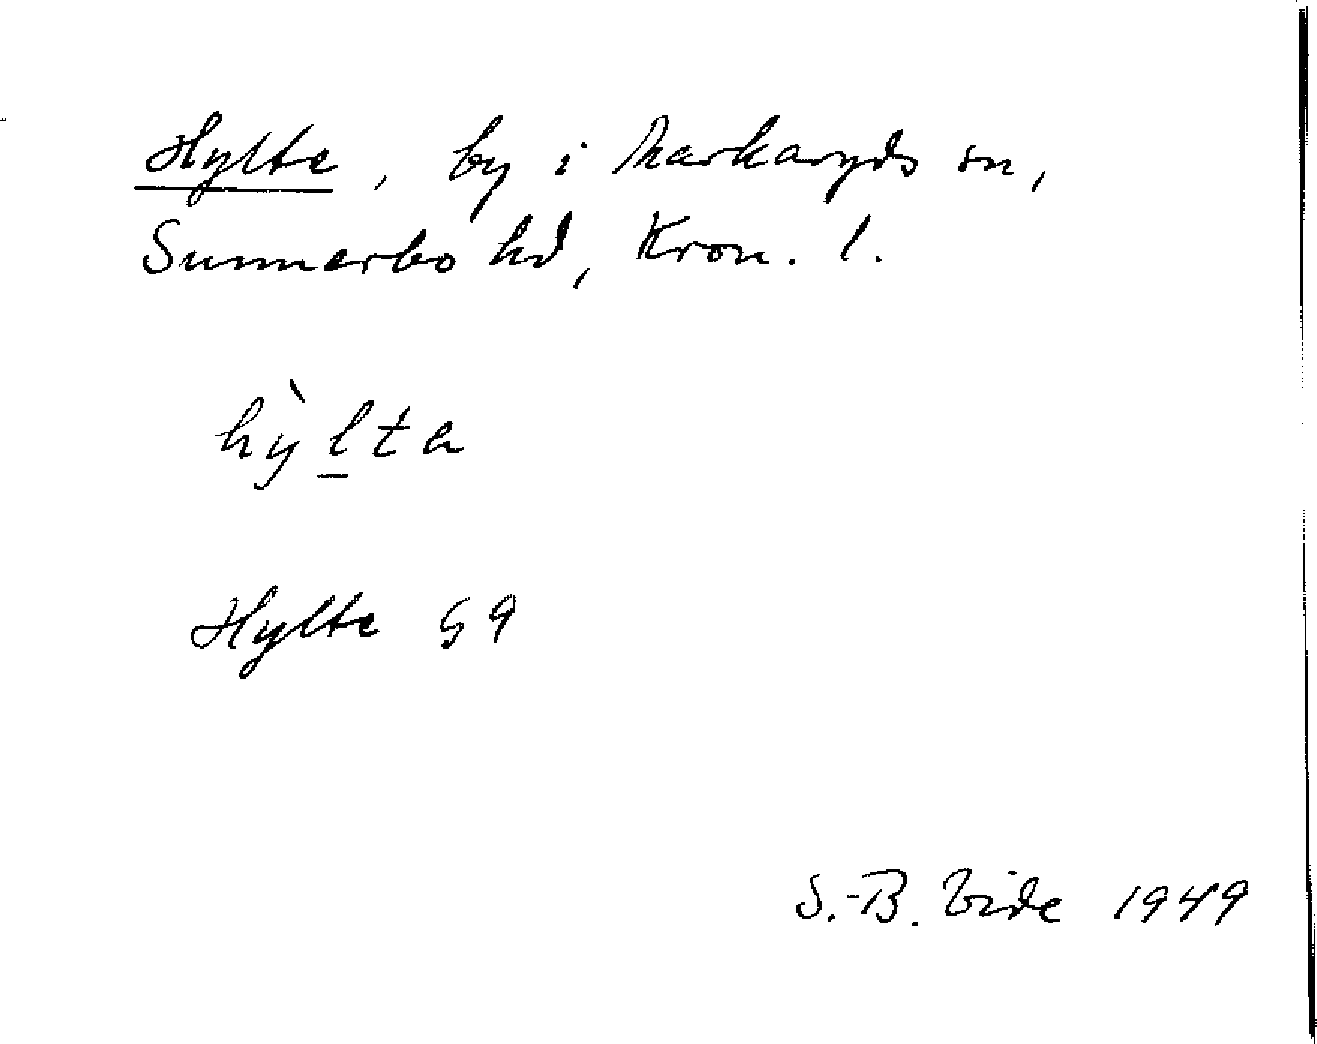 Hylte, by i Markaryds sn,
Sunnerbo hd, Kron. l.
hỳl̲ta
Hylte G9
S.-B. Vide 1949